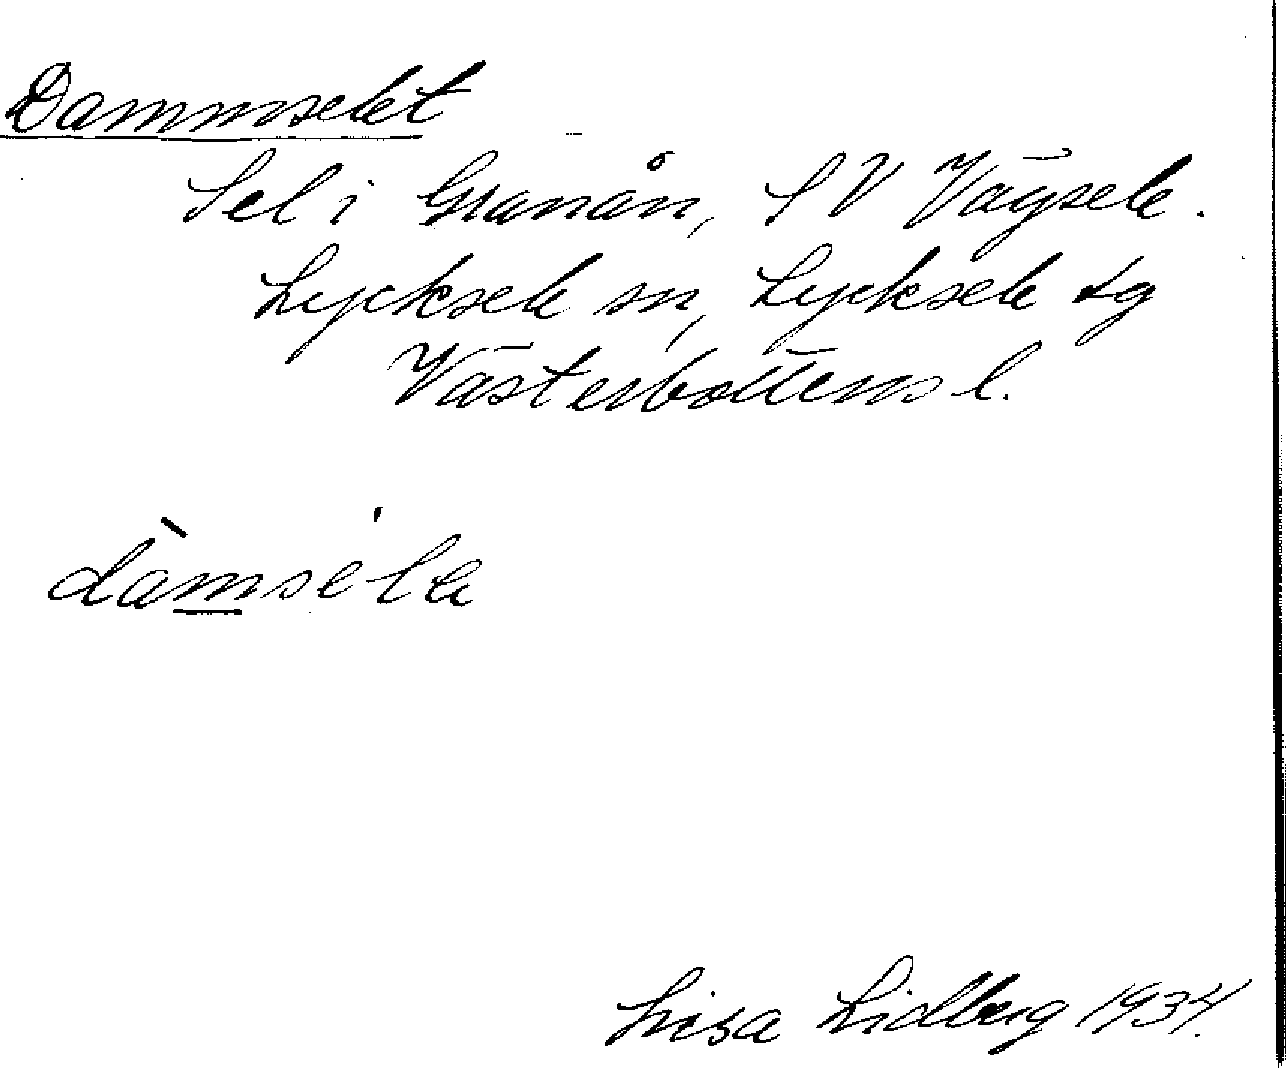 Dammselet
Sel i Granån, SV Vägsele.
Lycksele sn, Lycksele tg
Västerbottens l.
dàmséla
Lisa Lidberg 1934.